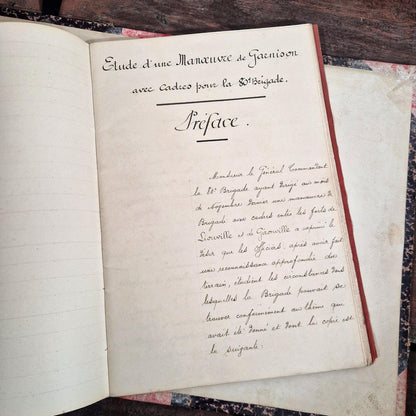 Etude d'une Manœuvre de Garnison
avec Cadres pour la 80e Brigade.
Préface.
Monsieur le Général Commandant
la 80e Brigade ayant dirigé au mois
de Novembre dernier une manœuvre de
Brigade avec cadres entre les forts de
Liouville et de Gironville a exprimé le
désir que les officiers, après avoir fait
une reconnaissance approfondie du
terrain, étudient les circonstances dans
lesquelles la Brigade pouvait se
trouver conformément au thème qui
avait été donné et dont la copie est
la suivante: